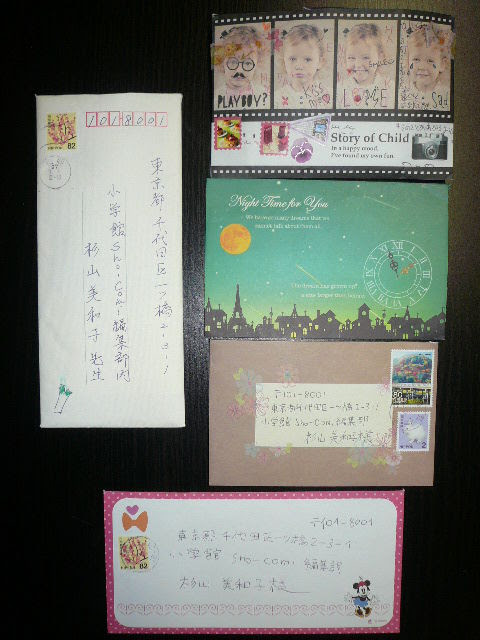 1018001
東京都千代田区一ツ橋2-3-1
小学館Sho-Comi編集部内
杉山美和子先生
82
PLAYBOY?
KISS
me
LOVE
Sad
Story of Child
In a happy mood.
I've found my own fun.
Night Time for You
We have many dreams that we
cannot talk about them all.
XII
〒101-8001
東京都千代田区一ツ橋2-3-1
小学館 Sho-Comi編集部
杉山美和子様
80
2
〒101-8001
東京都千代田区一ツ橋2-3-1
小学館 Sho-Comi 編集部
杉山 美和子様
82